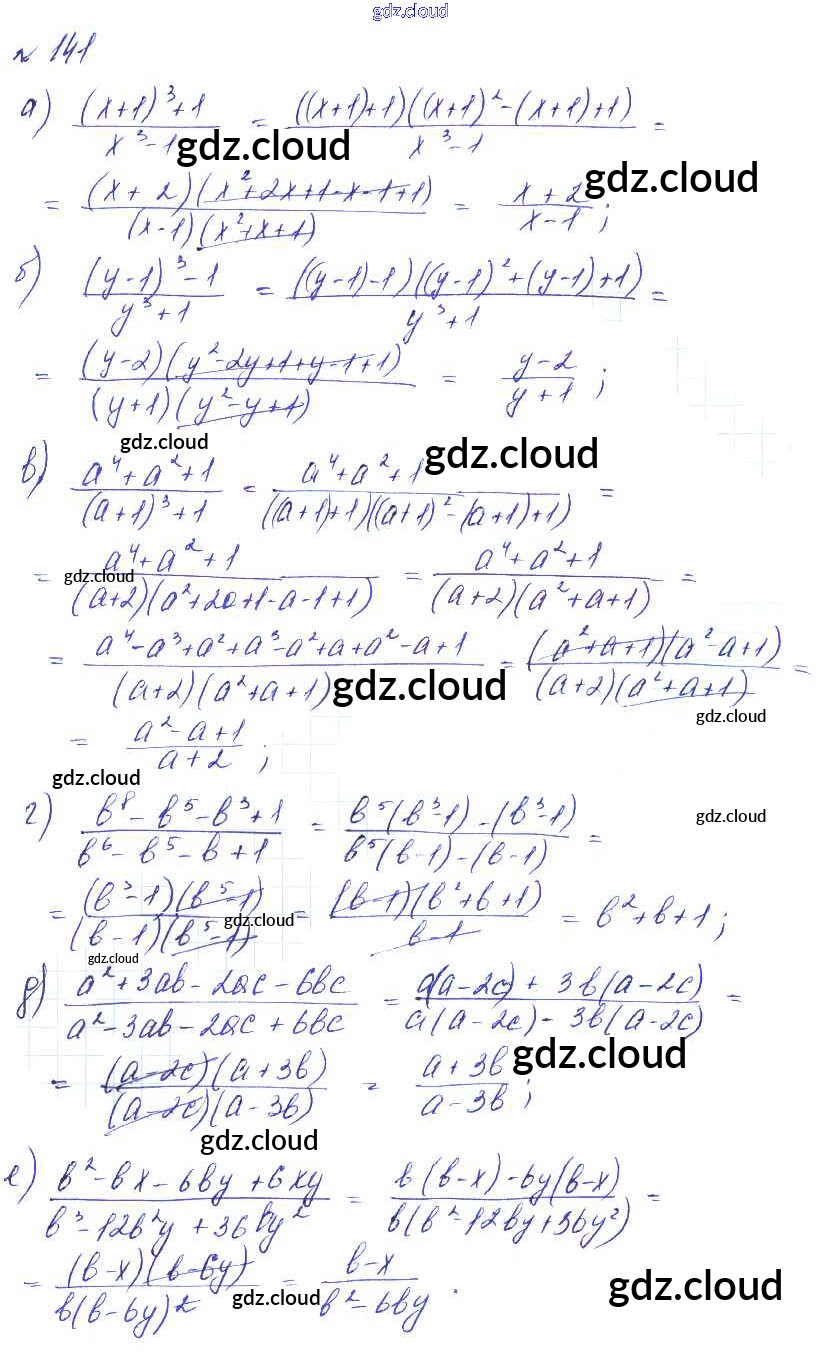 gdz.cloud
№ 141
а) ((x+1)³+1)/(x³-1) = (((x+1)+1)((x+1)²-(x+1)+1))/(x³-1) =
gdz.cloud
gdz.cloud
= ((x+2)(x²+2x+1-x-1+1))/((x-1)(x²+x+1)) = (x+2)/(x-1);
б) ((y-1)³-1)/(y³+1) = (((y-1)-1)((y-1)²+(y-1)+1))/(y³+1) =
= ((y-2)(y²-2y+1+y-1+1))/((y+1)(y²-y+1)) = (y-2)/(y+1);
gdz.cloud
gdz.cloud
в) (a⁴+a²+1)/((a+1)³+1) = (a⁴+a²+1)/(((a+1)+1)((a+1)²-(a+1)+1)) =
gdz.cloud
= (a⁴+a²+1)/((a+2)(a²+2a+1-a-1+1)) = (a⁴+a²+1)/((a+2)(a²+a+1)) =
= (a⁴-a³+a²+a³-a²+a+a²-a+1)/((a+2)(a²+a+1)) = ((a²+a+1)(a²-a+1))/((a+2)(a²+a+1)) =
gdz.cloud
gdz.cloud
= (a²-a+1)/(a+2);
gdz.cloud
г) (b⁸-b⁵-b³+1)/(b⁶-b⁵-b+1) = (b⁵(b³-1)-(b³-1))/(b⁵(b-1)-(b-1)) =
gdz.cloud
= ((b³-1)(b⁵-1))/((b-1)(b⁵-1)) = ((b-1)(b²+b+1))/(b-1) = b²+b+1;
gdz.cloud
gdz.cloud
д) (a²+3ab-2ac-6bc)/(a²-3ab-2ac+6bc) = (a(a-2c)+3b(a-2c))/(a(a-2c)-3b(a-2c)) =
gdz.cloud
= ((a-2c)(a+3b))/((a-2c)(a-3b)) = (a+3b)/(a-3b);
gdz.cloud
е) (b²-bx-6by+6xy)/(b³-12b²y+36by²) = (b(b-x)-6y(b-x))/(b(b²-12by+36y²)) =
= ((b-x)(b-6y))/(b(b-6y)²) = (b-x)/(b²-6by).
gdz.cloud
gdz.cloud